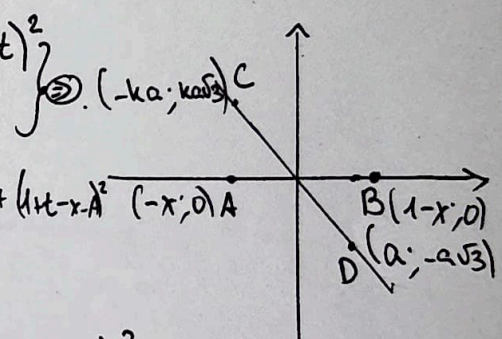 t)²
} ⊜. (-ka; ka√3) C
+ (1+t-x-A)² (-x; 0) A B (1-x; 0)
D (a; -a√3)